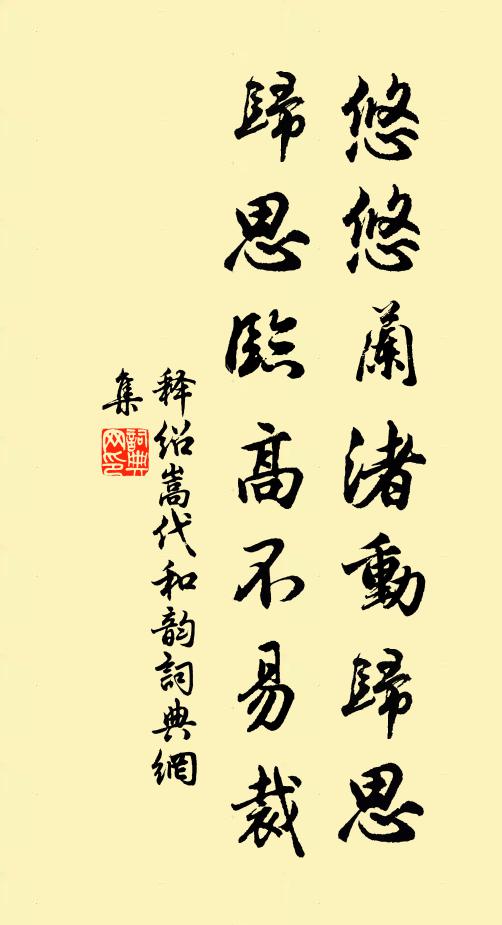 悠悠蘭渚動歸思
歸思臨高不易裁
释绍嵩代和韵詞典網
集
詞典网印